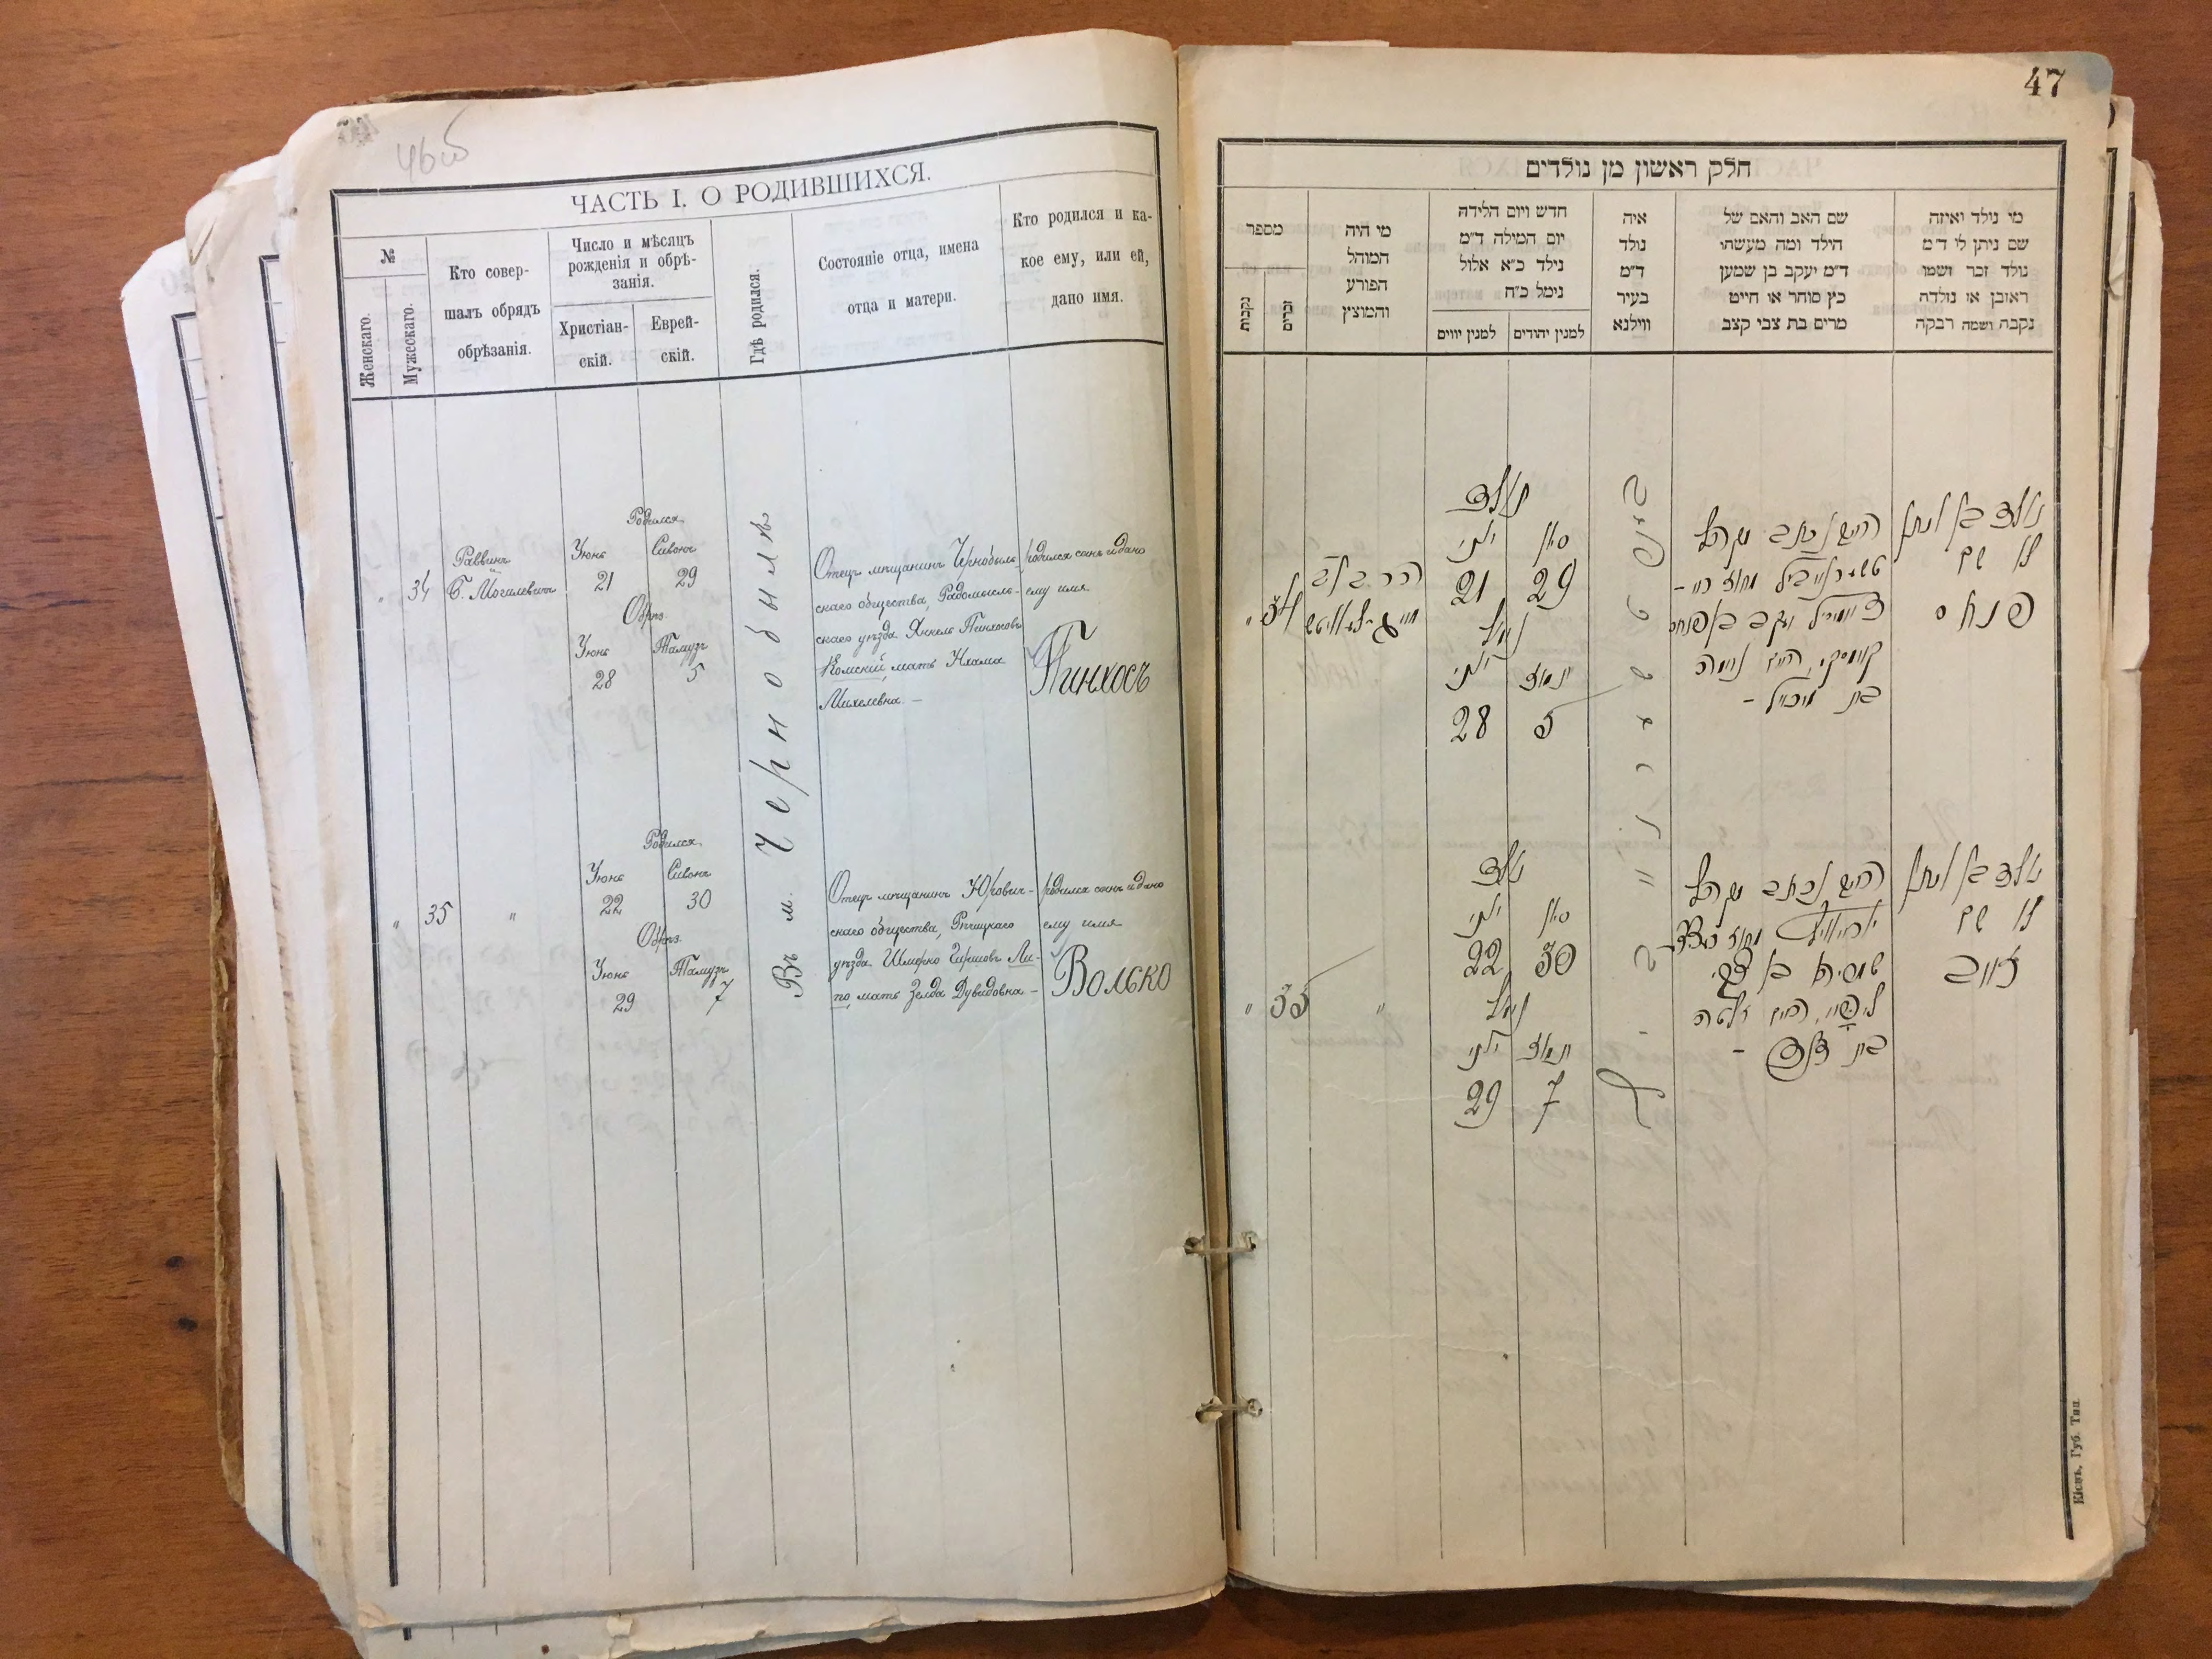 46 об
ЧАСТЬ I. О РОДИВШИХСЯ.
№
Женскаго.
Мужескаго.
Кто совер-
шалъ обрядъ
обрѣзанія.
Число и мѣсяцъ
рожденія и обрѣ-
занія.
Христіан-
скій.
Еврей-
скій.
Гдѣ родился.
Состояніе отца, имена
отца и матери.
Кто родился и ка-
кое ему, или ей,
дано имя.
" 34
Раввинъ
Б. Могилевичъ
Родился
Іюнь Сивонъ
21 29
Обрѣз.
Іюнь Тамузъ
28 5
Въ м. Чернобылѣ
Отецъ мѣщанинъ Чернобыль-
скаго общества, Радомысль-
скаго уѣзда Янкель Пинхосовъ
Комскій, мать Нхама
Михелевна. —
родился сынъ и дано
ему имя
Пинхосъ
" 35 "
Родился
Іюнь Сивонъ
22 30
Обрѣз.
Іюнь Тамузъ
29 7
Отецъ мѣщанинъ Юрович-
скаго общества, Рѣчицкаго
уѣзда Шмерко Гиршовъ Ли-
по, мать Зелда Дувидовна —
родился сынъ и дано
ему имя
Волько
47
חלק ראשון מן נולדים
מי נולד ואיזה
שם ניתן לו ד"מ
נולד זכר ושמו
ראובן או נולדה
נקבה ושמה רבקה
שם האב והאם של
הילד ומה מעשתי
ד"מ יעקב בן שמען
כץ סוחר או חייט
מרים בת צבי קצב
איה
נולד
ד"מ
בעיר
ווילנא
חדש ויום הלידה
יום המילה ד"מ
נילד כ"א אלול
נימל כ"ח
למנין יהודים
למנין יווים
מי היה
המוהל
הפורע
והמוצץ
מספר
זכרים
נקבות
נולד בן וניתן
לו שם
פנחס
יעקב בן פנחס
בת מיכל -
נולד
סיון יוני
29 21
נימל
תמוז יוני
5 28
34 "
נולד בן וניתן
לו שם
זאב
בת דוד -
נולד
סיון יוני
30 22
נימל
תמוז יוני
7 29
" 35 "
Кіевъ, Губ. Тип.